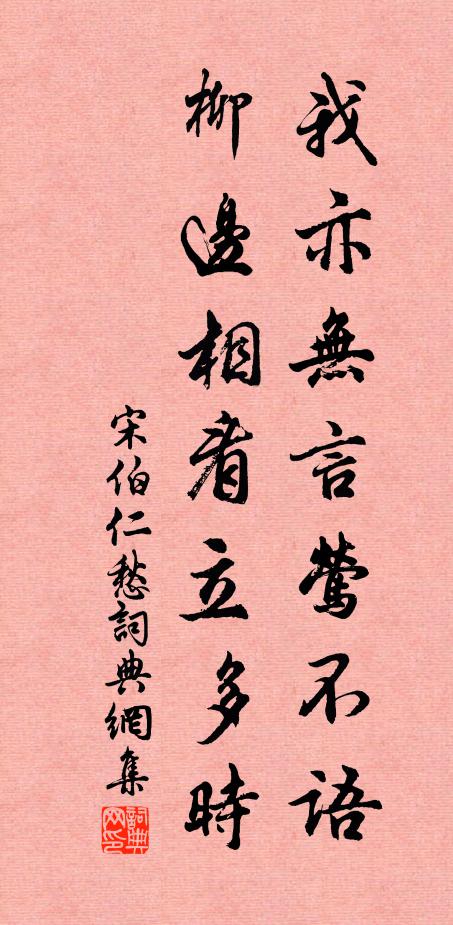 我亦無言鶯不語
柳邊相看立多時
宋伯仁愁詞典網集
詞典網印